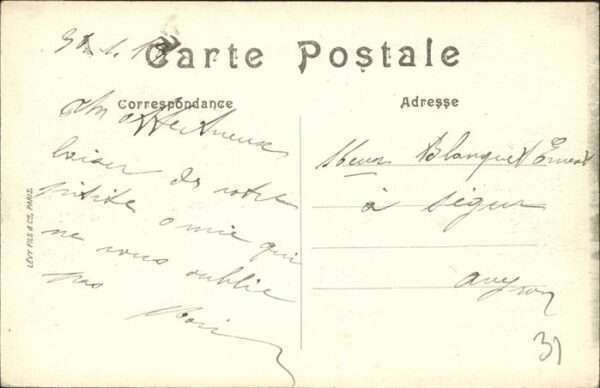 Carte Postale
Correspondance
Adresse
un affectueux
baiser de votre
petite amie qui
ne vous oublie
pas
Blanquet Ernest
à Ségur
Aveyron
LÉVY FILS & Cie, PARIS
31